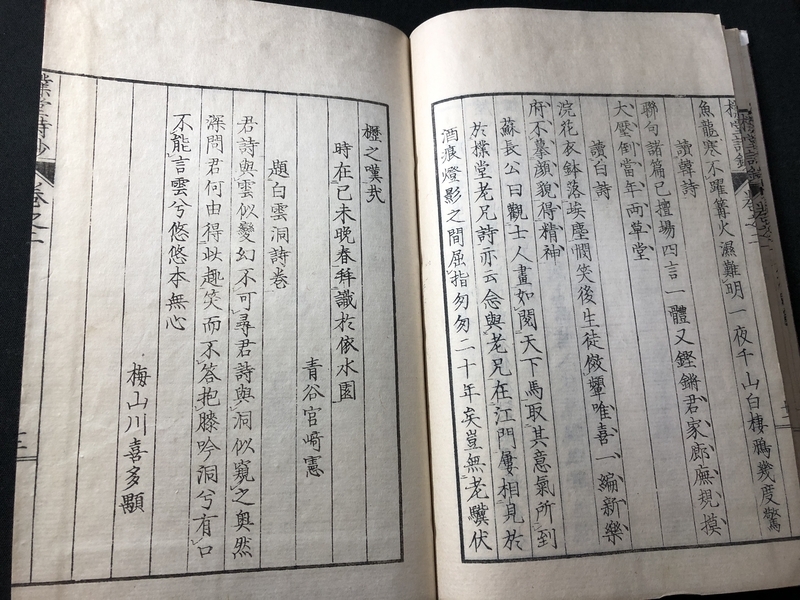 魚龍寒不躍篝火濕難明一夜千山白棲鴉幾度驚
讀韓詩
聯句諸篇已擅場四言一體又鏗鏘君家廊廡規摸
大壓倒當年兩草堂
讀白詩
浣花衣鉢落埃塵憫笑後生徒傚顰唯喜一編新樂
府不摹顏貌得精神
蘇長公曰觀士人畫如閱天下馬取其意氣所到
於樸堂老兄詩亦云念與老兄在江門屢相見於
酒痕燈影之間屈指匆匆二十年矣豈無老驥伏
櫪之嘆哉
時在己未晚春拜識於依水園
青谷宮崎憲
題白雲洞詩卷
君詩與雲似變幻不可尋君詩與洞似窺之奧然
深問君何由得此趣笑而不答抱膝吟洞兮有口
不能言雲兮悠悠本無心
梅山川喜多顒
卷之一